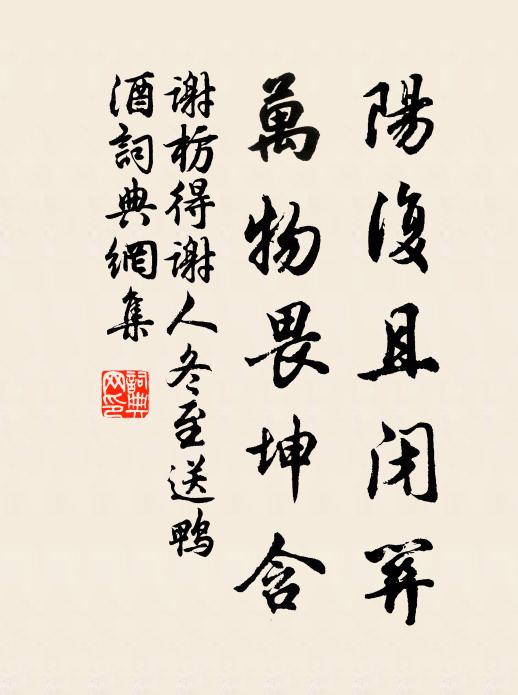 陽復且闭關
萬物畏坤含
謝枋得謝人冬至送鴨
酒詞典網集
詞典
网印